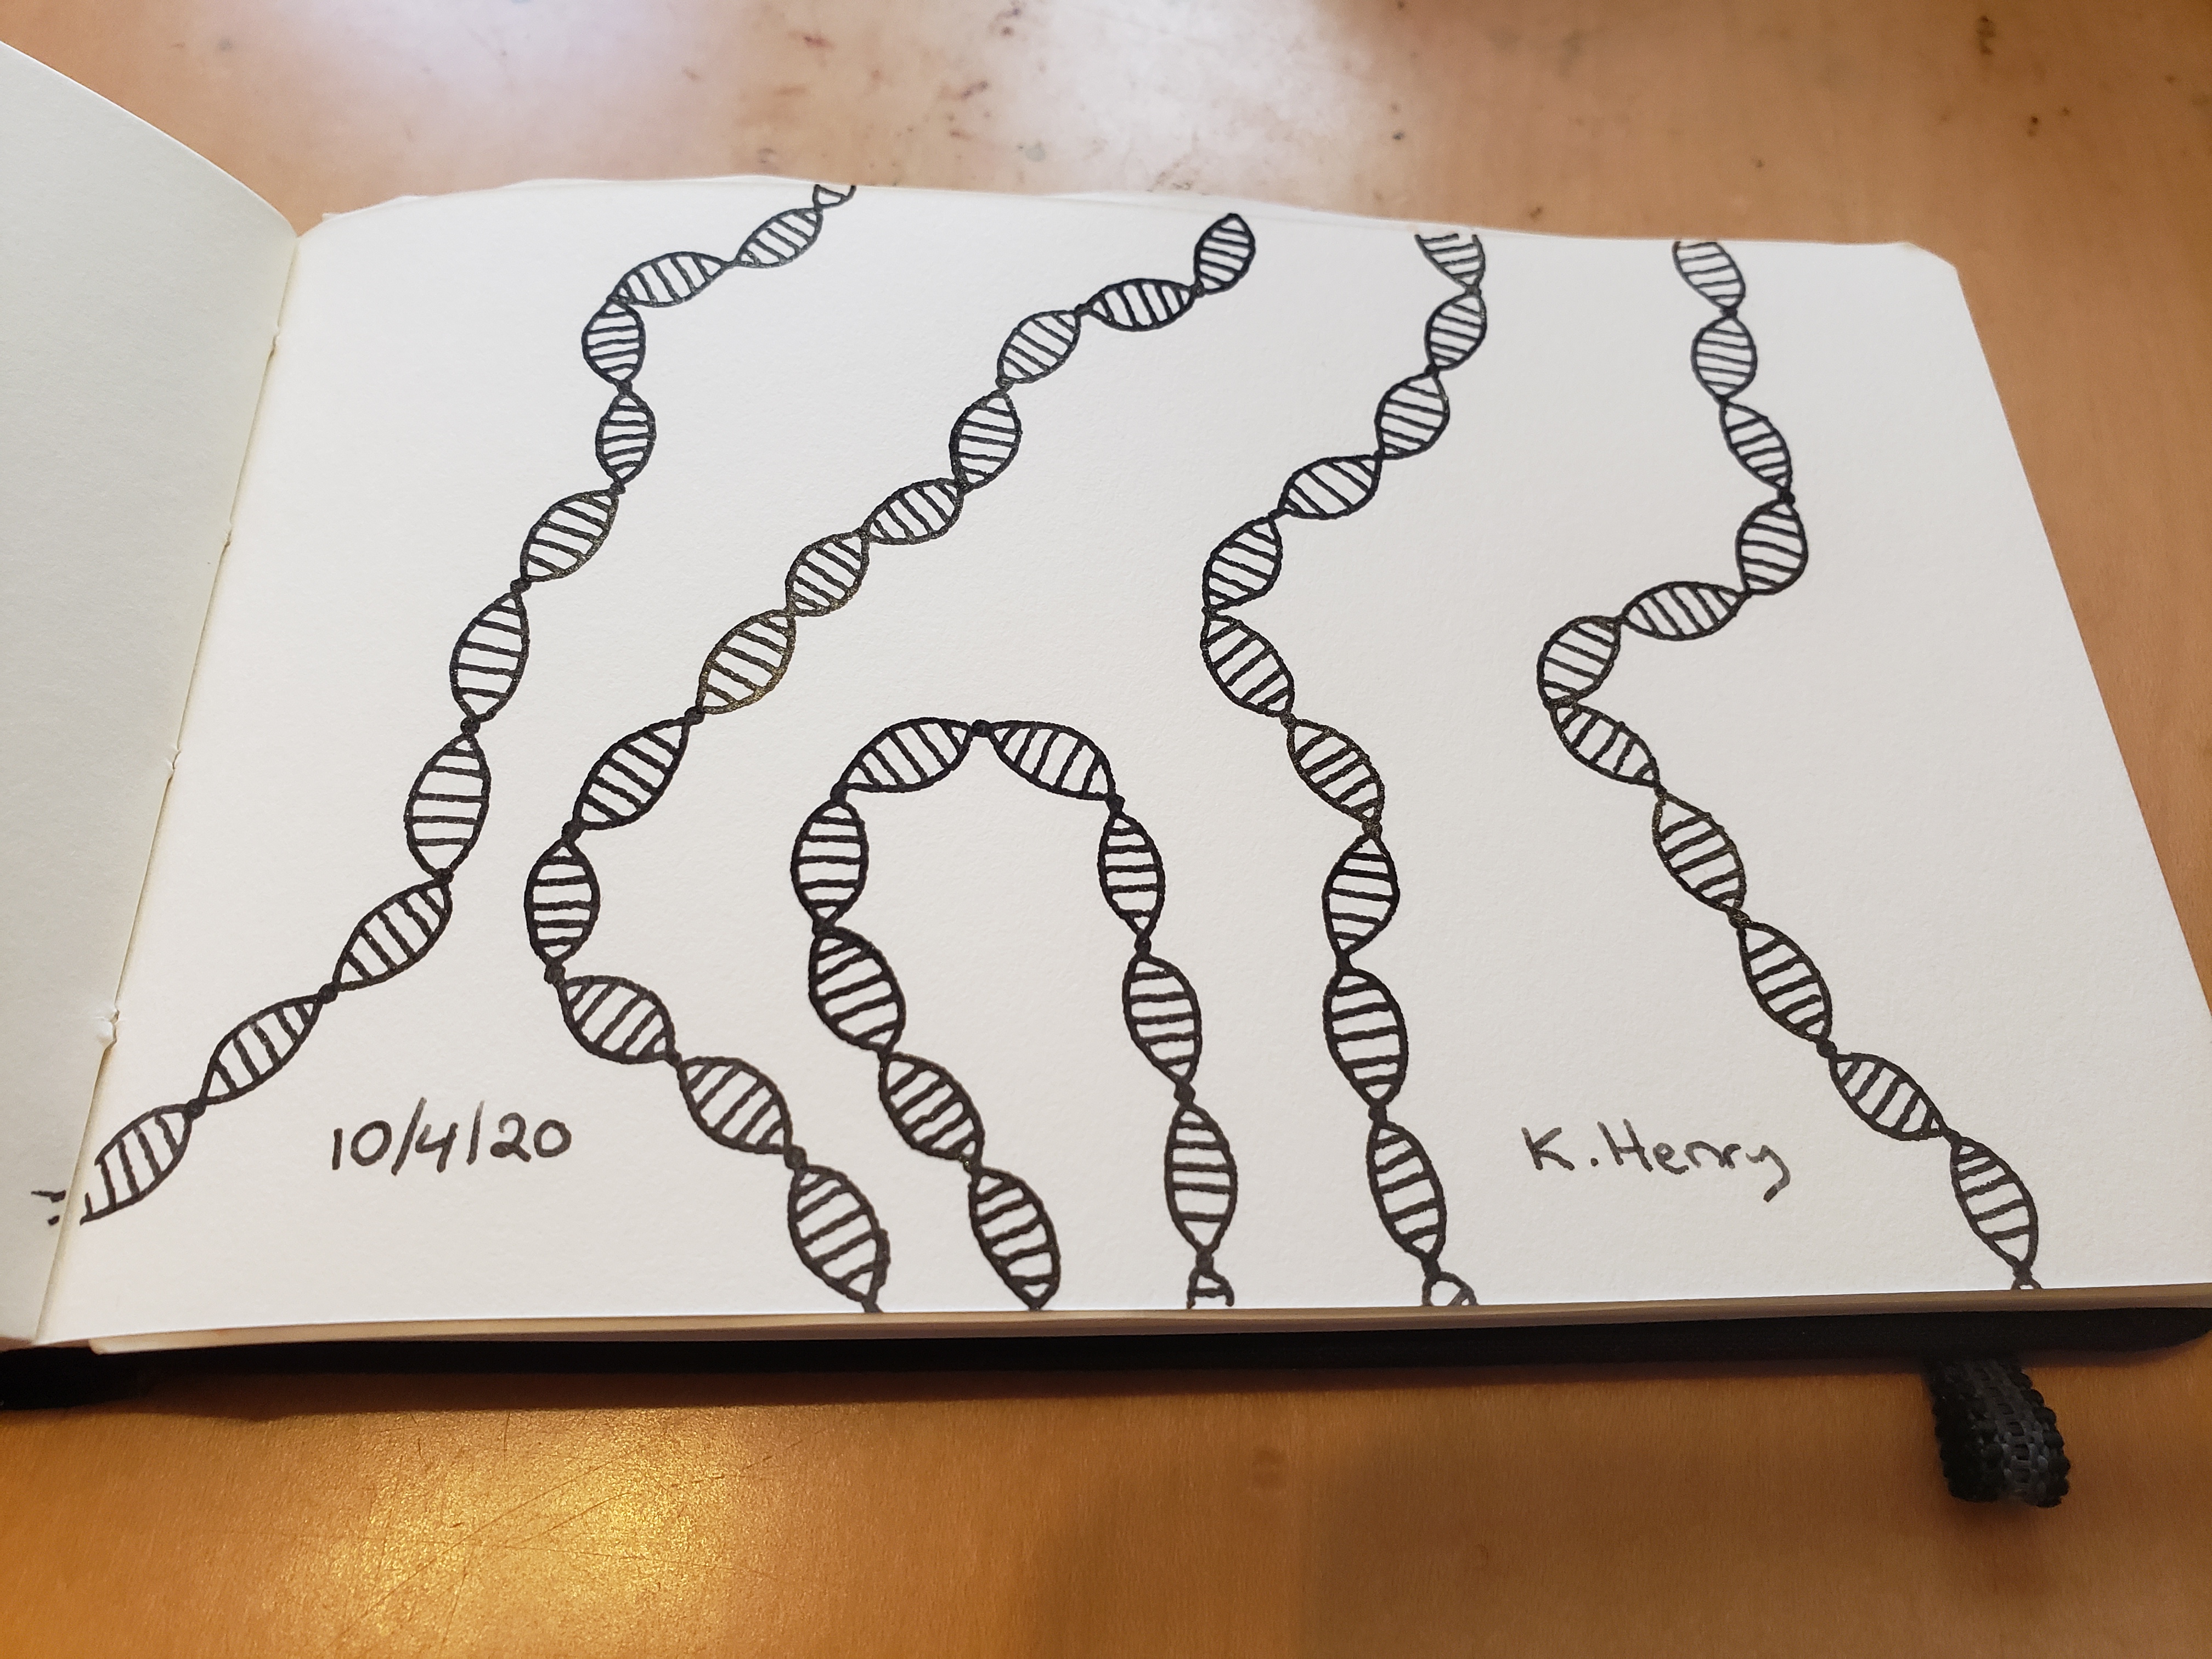 10/4/20
K. Henry